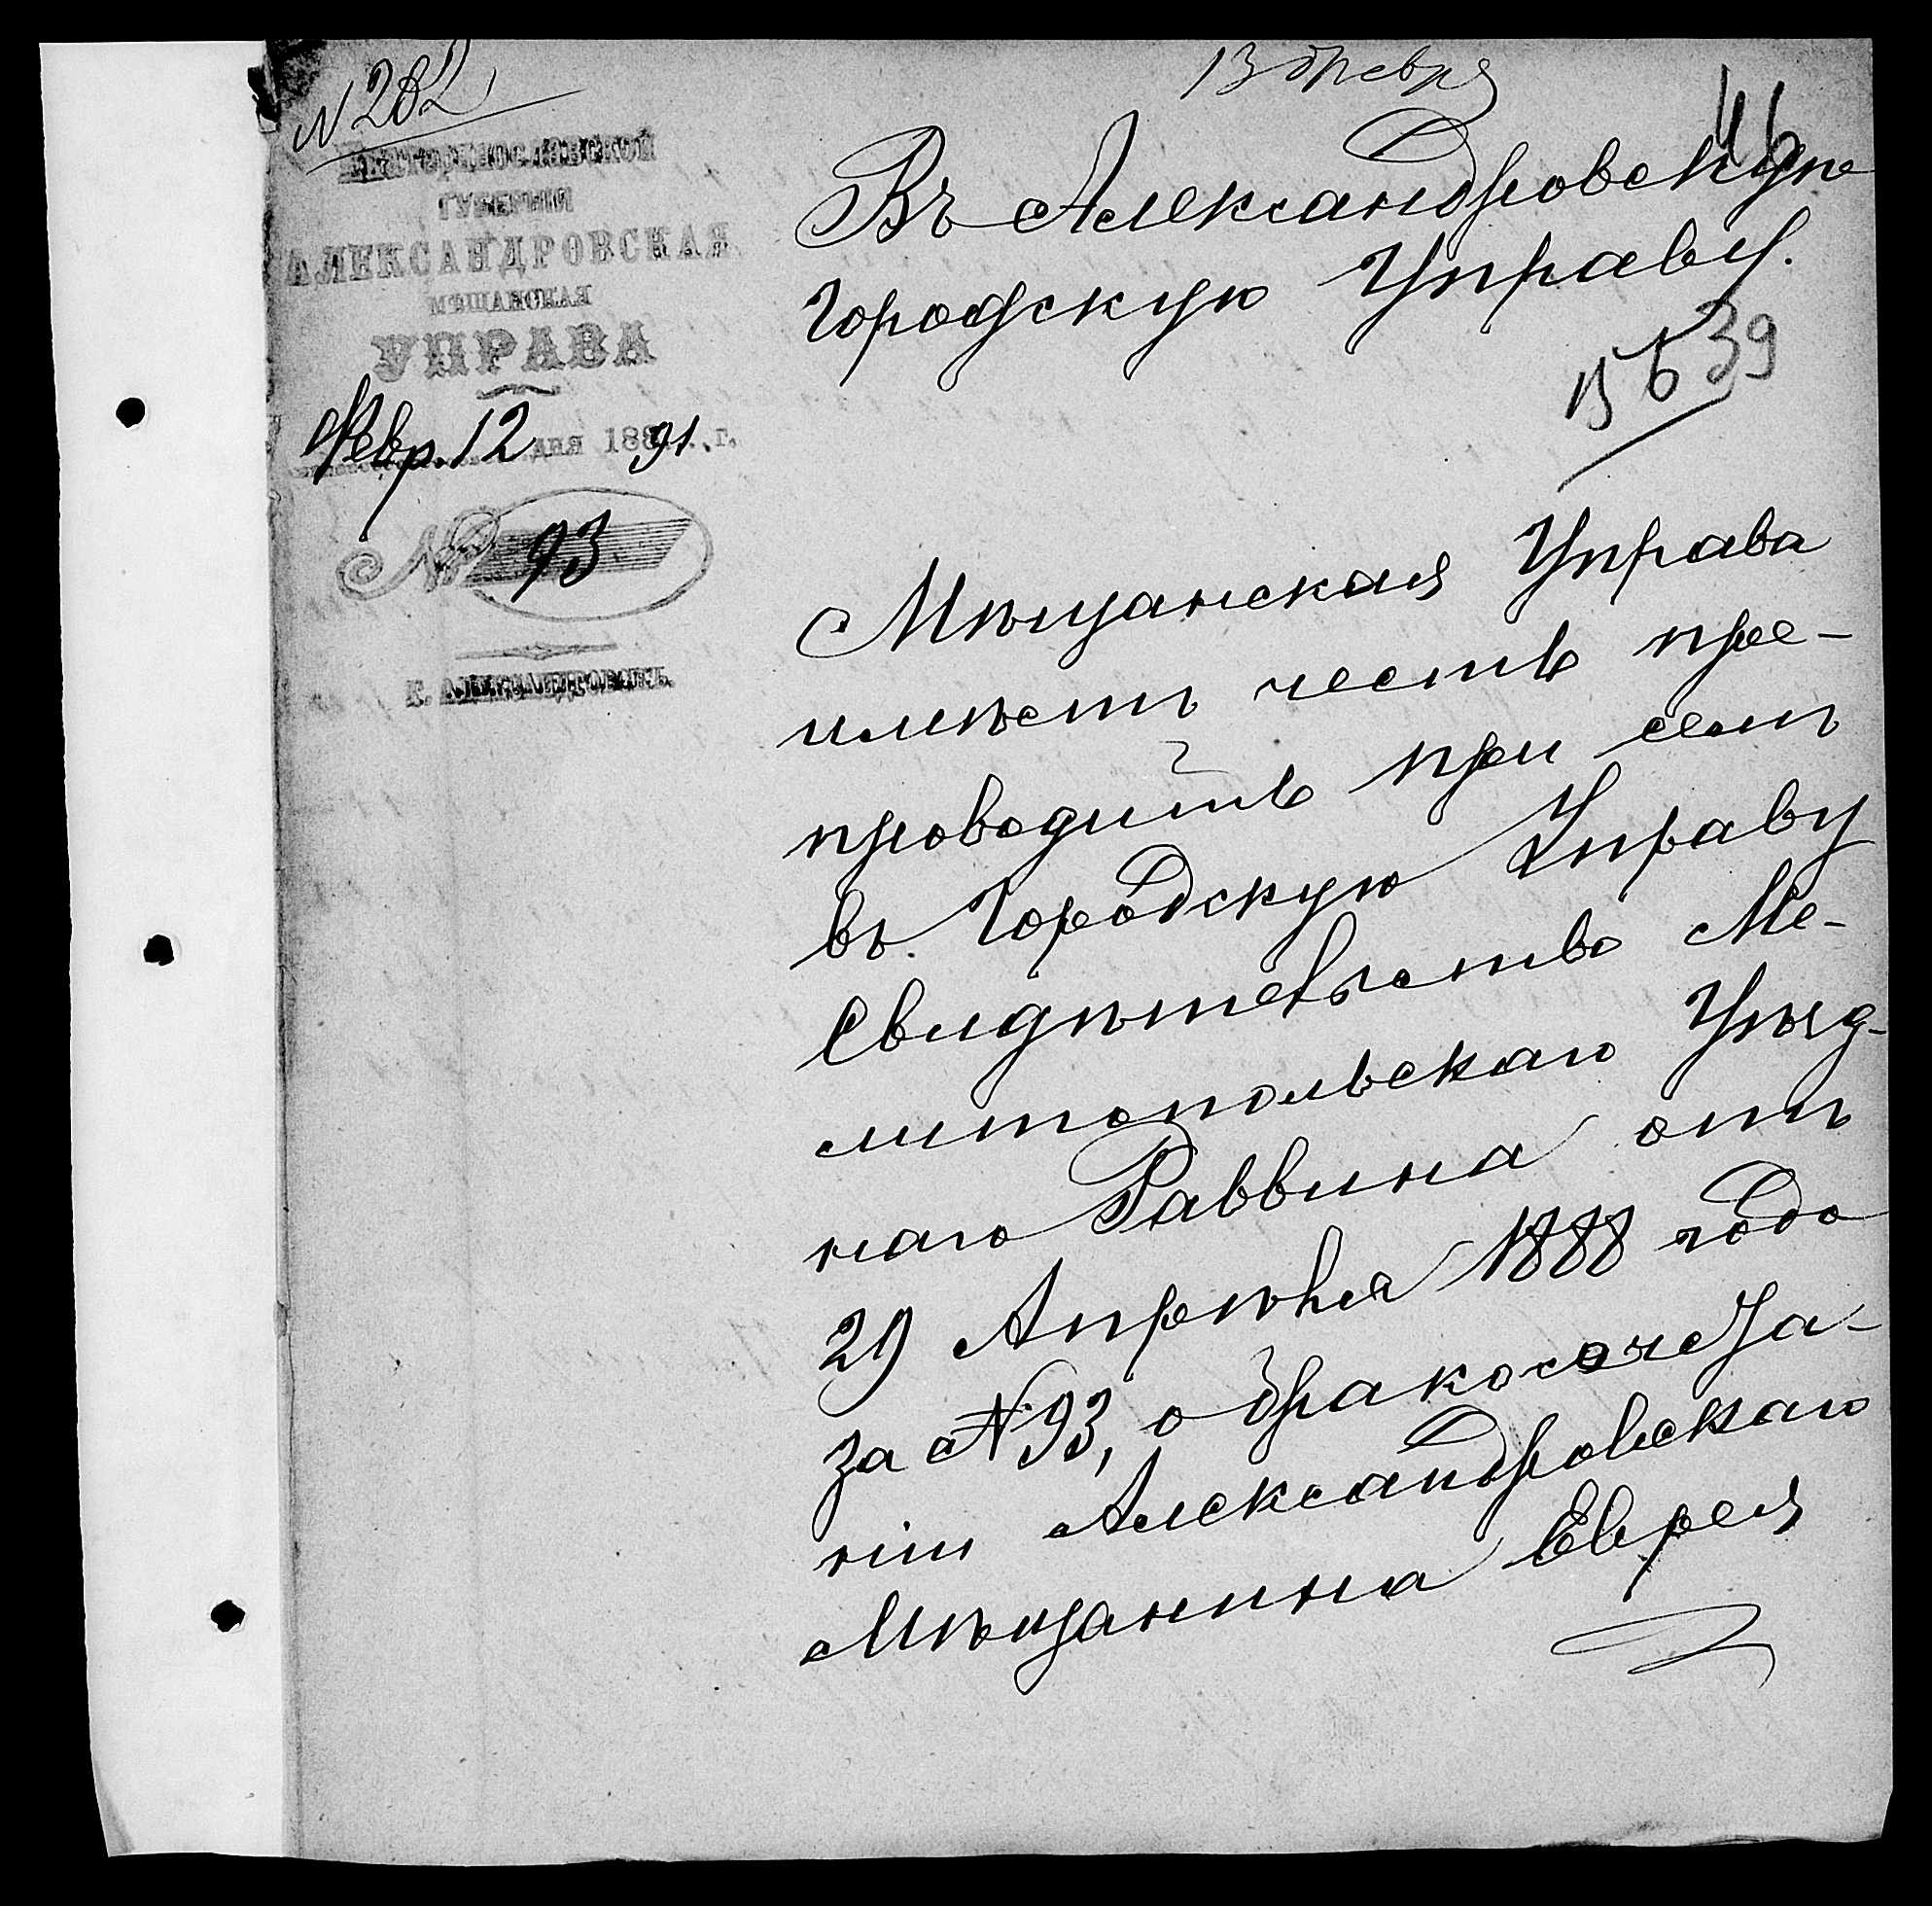 № 282
13 Февр
46
ЕКАТЕРИНОСЛАВСКОЙ
ГУБЕРНІИ
АЛЕКСАНДРОВСКАЯ
МѢЩАНСКАЯ
УПРАВА
Февр. 12 дня 1891 г.
№ 93
Г. АЛЕКСАНДРОВСКЪ.
Въ Александровскую
Городскую Управу.
39
Мѣщанская Управа
имѣетъ честь пре-
проводить при семъ
въ Городскую Управу
Свидѣтельство Ме-
литопольскаго Уѣзд-
наго Раввина отъ
29 Апрѣля 1888 года
за № 93, о бракосочета-
ніи Александровскаго
Мѣщанина Еврея